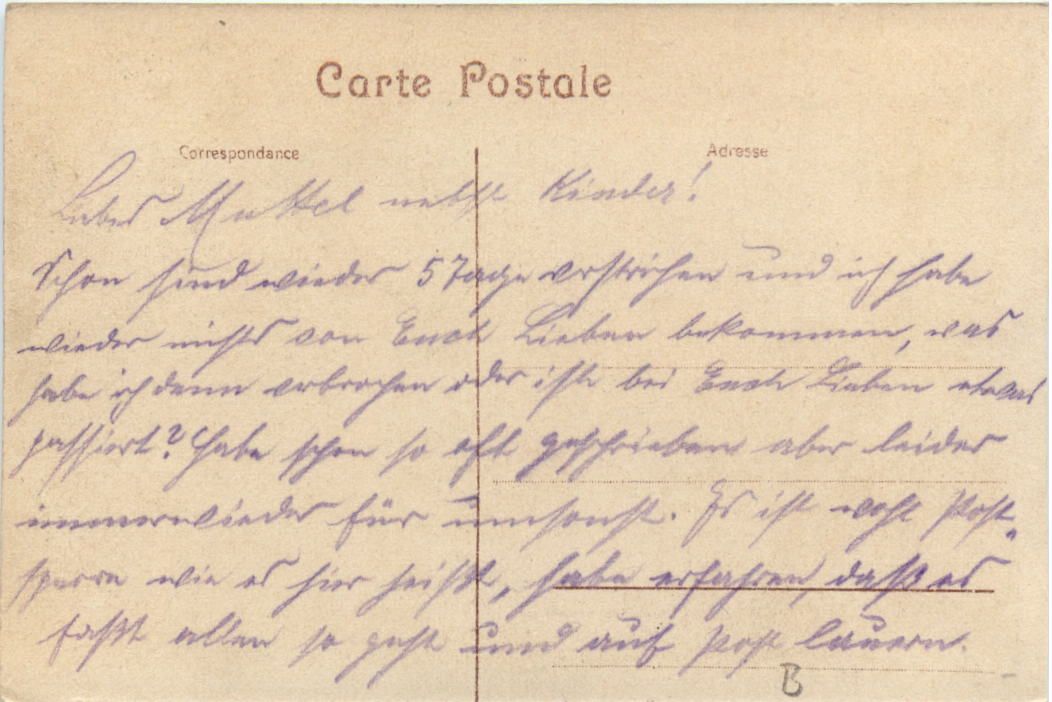 Carte Postale
Correspondance
Adresse
Liebes Muttel nebst Kinder!
Schon sind wieder 5 Tage verstrichen und ich habe
wieder nichts von Euch Lieben bekommen, was
habe ich denn verbrochen oder ist bei Euch Lieben etwas
passiert? Habe schon so oft geschrieben aber leider
immer wieder für umsonst. Es ist wohl Post-
sperre wie es hier heißt, habe erfahren, daß es
faßt allen so geht und auf Post lauern.
B